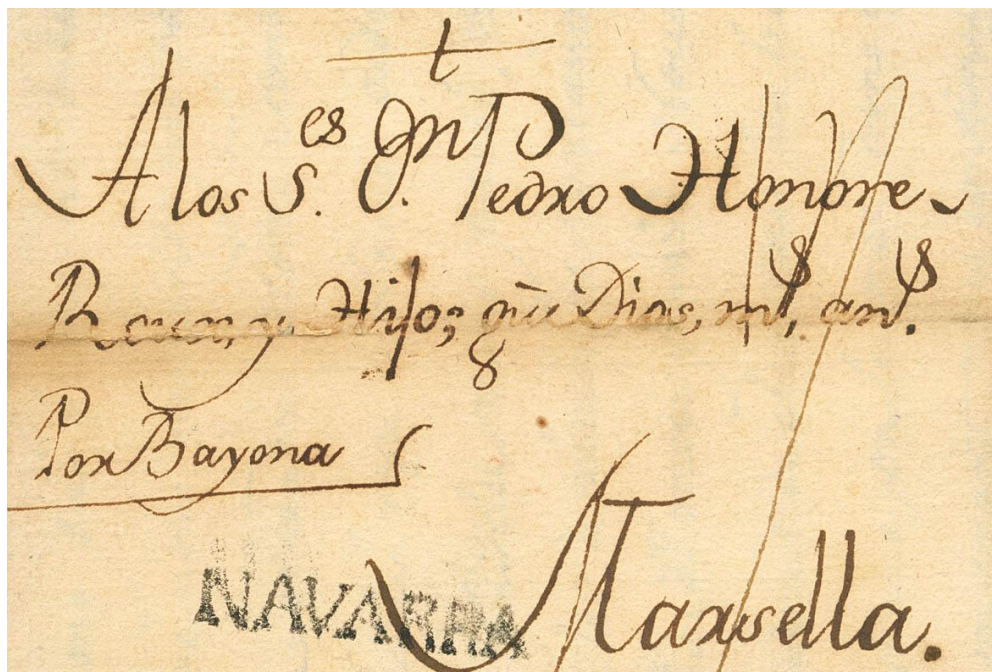 A los S.es D.n Pedro Honore
y Hijo, gue Dios, ms, ans.
Por Bayona
NAVARRA
Marsella.